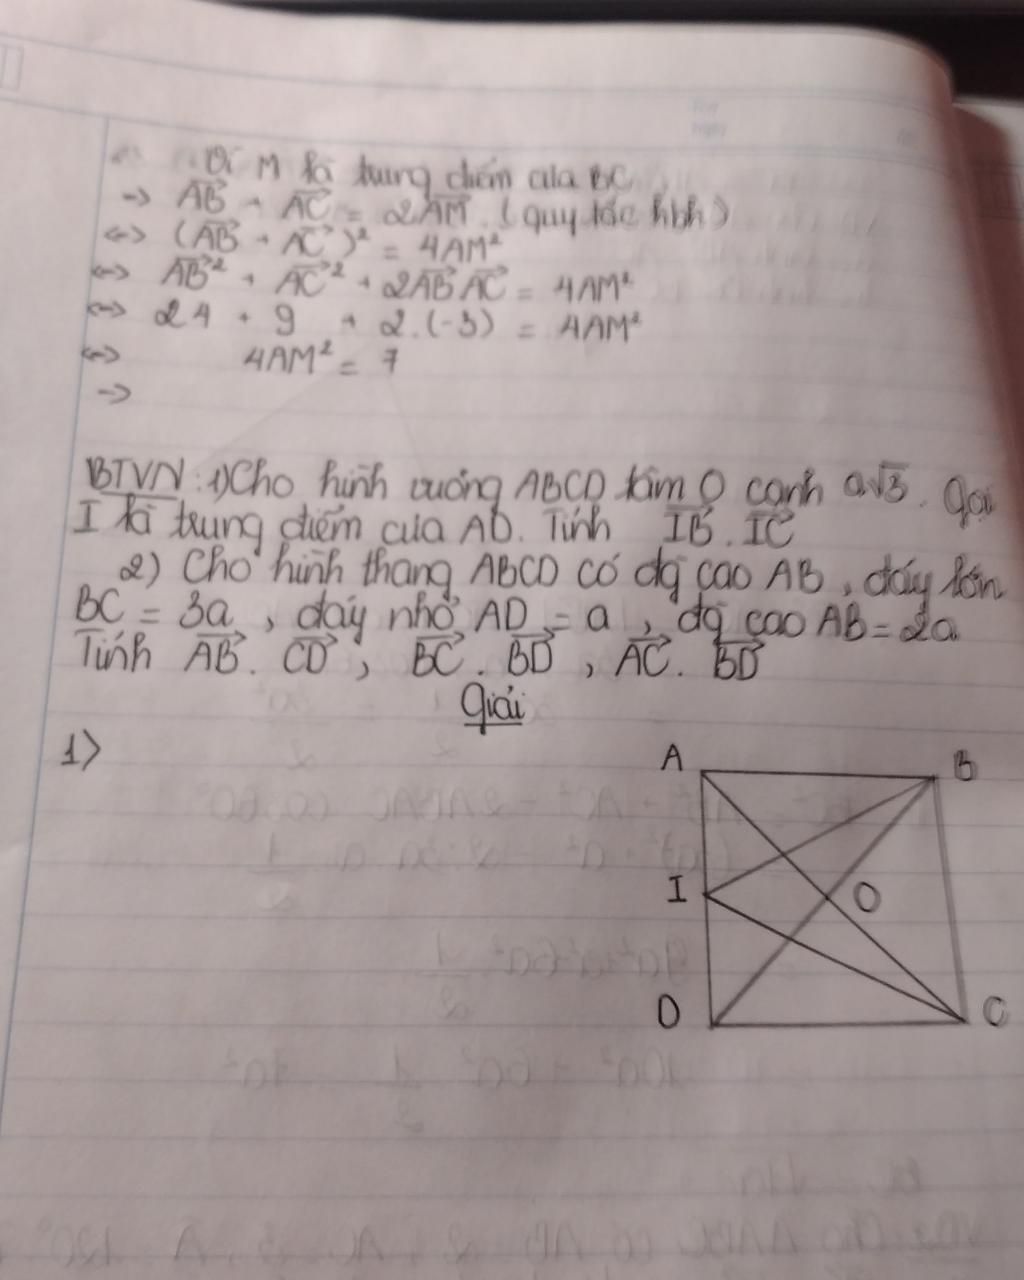 Vì M là trung điểm của BC
→ AB + AC = 2AM (quy tắc hbh)
<=> (AB + AC)² = 4AM²
<=> AB² + AC² + 2AB AC = 4AM²
<=> 24 + 9 + 2.(-3) = 4AM²
<=> 4AM² = 7
→
BTVN: 1) Cho hình vuông ABCD tâm O cạnh a√3. Gọi
I là trung điểm của AD. Tính IB. IC
2) Cho hình thang ABCD có độ cao AB, đáy lớn
BC = 3a, đáy nhỏ AD = a, độ cao AB = 2a
Tính AB. CD, BC. BD, AC. BD
Giải
1)
A B
I O
D C